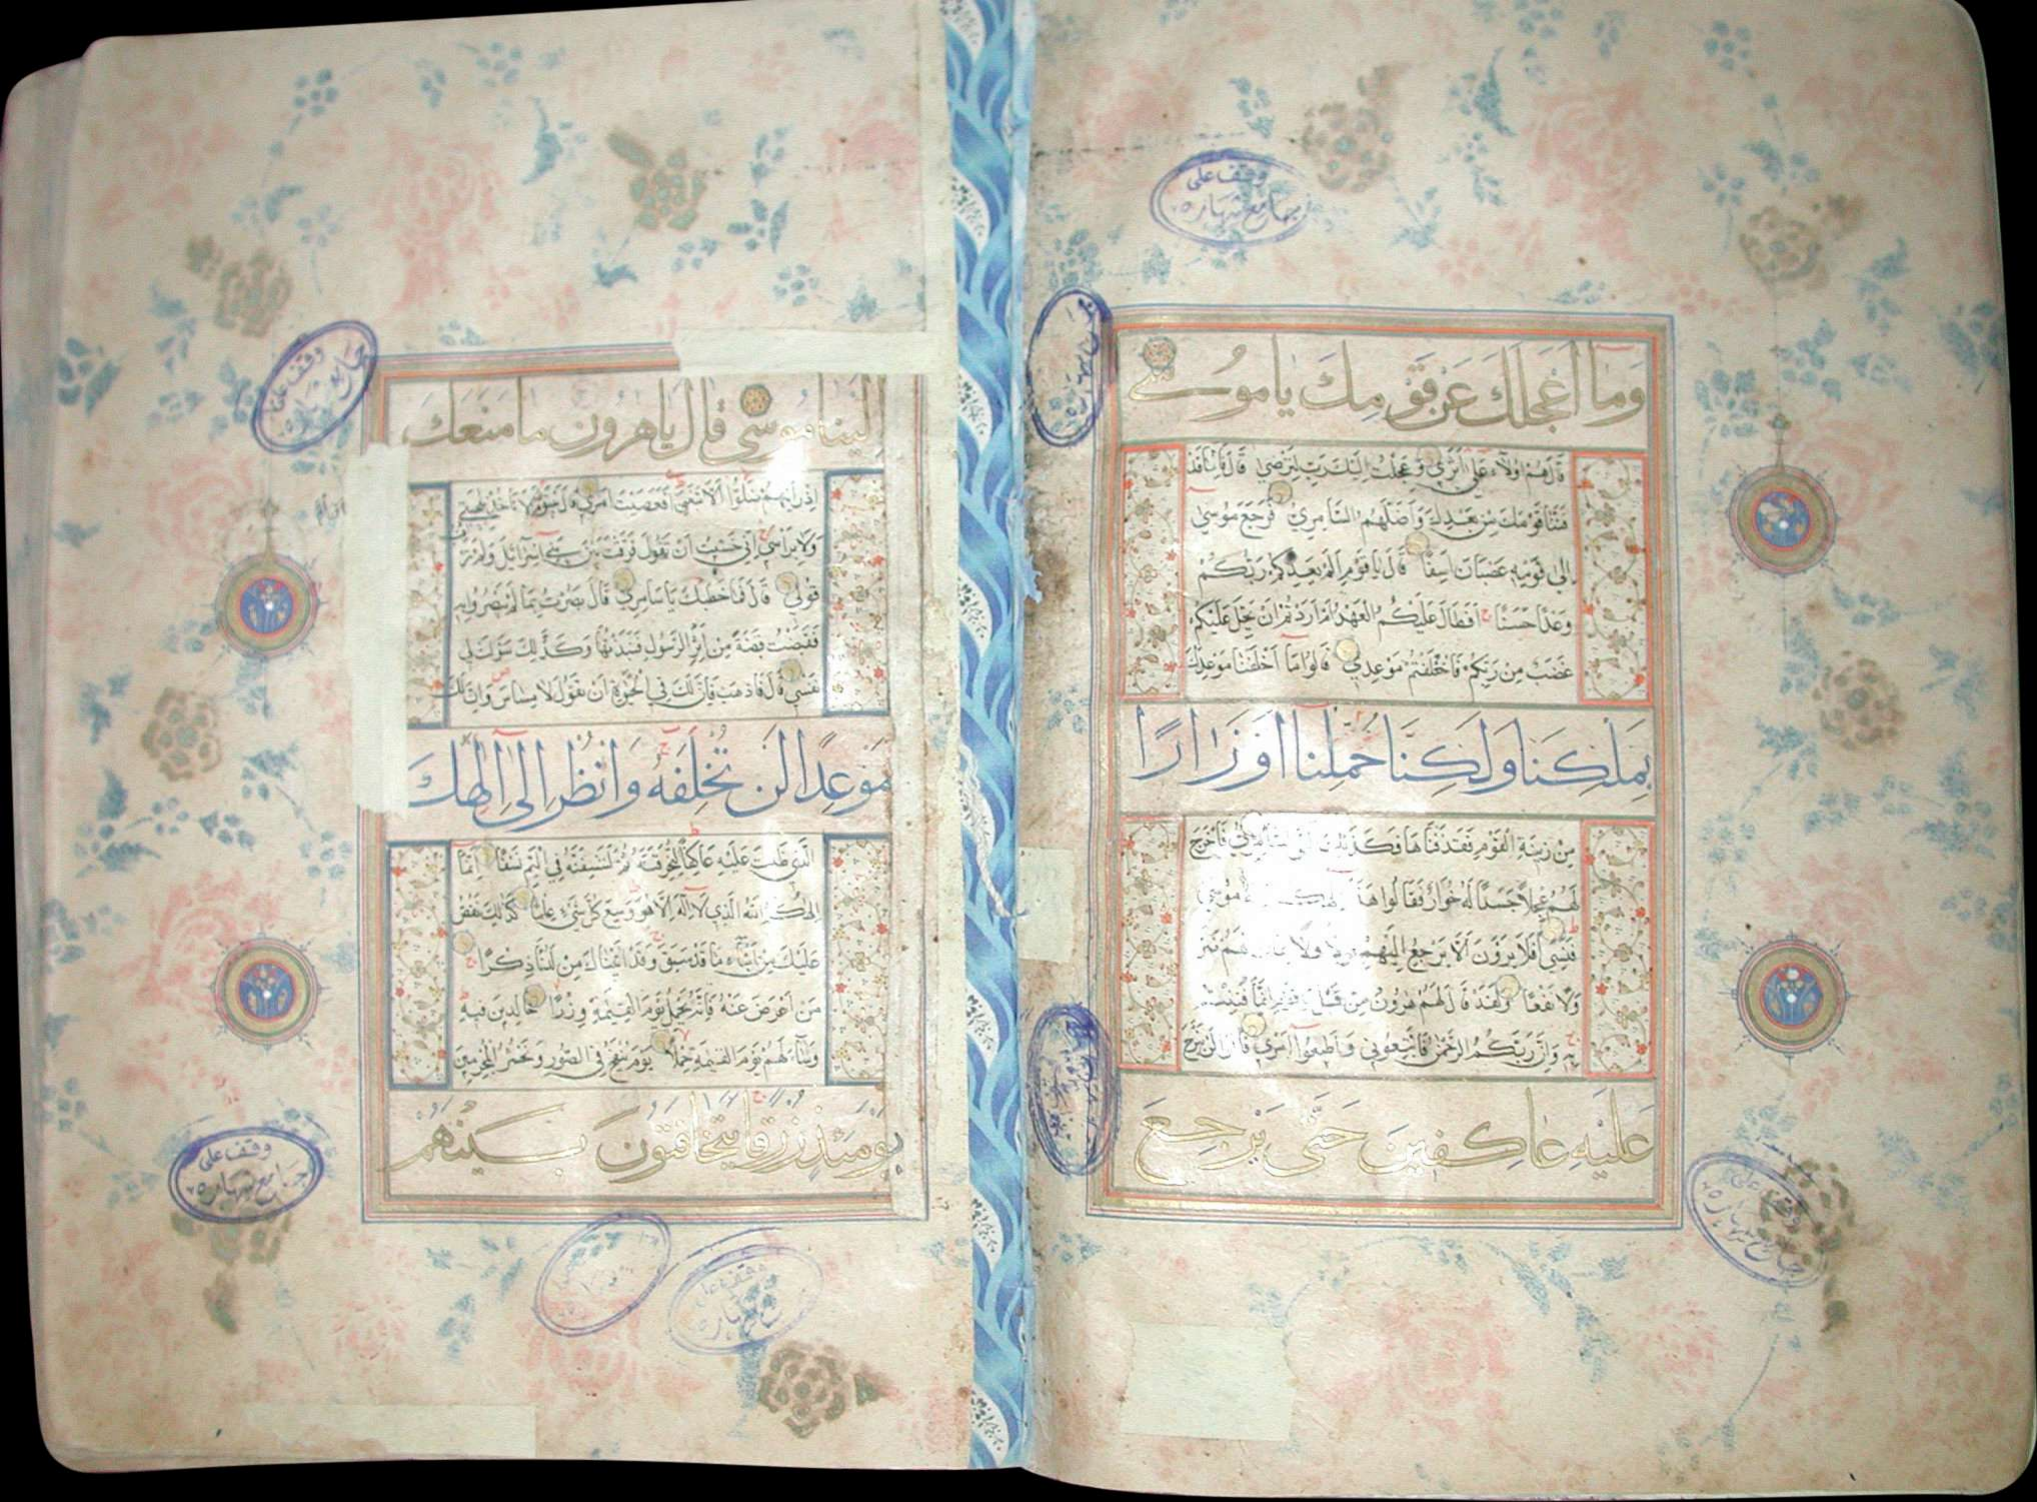 وَمَا أَعْجَلَكَ عَنْ قَوْمِكَ يَامُوسَىٰ
قَالَ هُمْ أُولَاءِ عَلَىٰ أَثَرِي وَعَجِلْتُ إِلَيْكَ رَبِّ لِتَرْضَىٰ قَالَ فَإِنَّا قَدْ
فَتَنَّا قَوْمَكَ مِنْ بَعْدِكَ وَأَضَلَّهُمُ السَّامِرِيُّ فَرَجَعَ مُوسَىٰ
إِلَىٰ قَوْمِهِ غَضْبَانَ أَسِفًا قَالَ يَاقَوْمِ أَلَمْ يَعِدْكُمْ رَبُّكُمْ
وَعْدًا حَسَنًا أَفَطَالَ عَلَيْكُمُ الْعَهْدُ أَمْ أَرَدْتُمْ أَنْ يَحِلَّ عَلَيْكُمْ
غَضَبٌ مِنْ رَبِّكُمْ فَأَخْلَفْتُمْ مَوْعِدِي قَالُوا مَا أَخْلَفْنَا مَوْعِدَكَ
بِمَلْكِنَا وَلَٰكِنَّا حُمِّلْنَا أَوْزَارًا
مِنْ زِينَةِ الْقَوْمِ فَقَذَفْنَاهَا فَكَذَٰلِكَ أَلْقَى السَّامِرِيُّ فَأَخْرَجَ
لَهُمْ عِجْلًا جَسَدًا لَهُ خُوَارٌ فَقَالُوا هَٰذَا إِلَٰهُكُمْ مُوسَىٰ
فَنَسِيَ أَفَلَا يَرَوْنَ أَلَّا يَرْجِعُ إِلَيْهِمْ قَوْلًا وَلَا لَهُمْ ضَرًّا
وَلَا نَفْعًا وَلَقَدْ قَالَ لَهُمْ هَٰرُونُ مِنْ قَبْلُ يَاقَوْمِ إِنَّمَا فُتِنْتُمْ
بِهِ وَإِنَّ رَبَّكُمُ الرَّحْمَٰنُ فَاتَّبِعُونِي وَأَطِيعُوا أَمْرِي قَالُوا لَنْ نَبْرَحَ
عَلَيْهِ عَاكِفِينَ حَتَّىٰ يَرْجِعَ
إِلَيْنَا مُوسَىٰ قَالَ يَاهَٰرُونُ مَا مَنَعَكَ
إِذْ رَأَيْتَهُمْ ضَلُّوا أَلَّا تَتَّبِعَنِ أَفَعَصَيْتَ أَمْرِي قَالَ يَبْنَؤُمَّ لَا تَأْخُذْ بِلِحْيَتِي
وَلَا بِرَأْسِي إِنِّي خَشِيتُ أَنْ تَقُولَ فَرَّقْتَ بَيْنَ بَنِي إِسْرَائِيلَ وَلَمْ تَرْقُبْ
قَوْلِي قَالَ فَمَا خَطْبُكَ يَاسَامِرِيُّ قَالَ بَصُرْتُ بِمَا لَمْ يَبْصُرُوا بِهِ
فَقَبَضْتُ قَبْضَةً مِنْ أَثَرِ الرَّسُولِ فَنَبَذْتُهَا وَكَذَٰلِكَ سَوَّلَتْ لِي
نَفْسِي قَالَ فَاذْهَبْ فَإِنَّ لَكَ فِي الْحَيَوٰةِ أَنْ تَقُولَ لَا مِسَاسَ وَإِنَّ لَكَ
مَوْعِدًا لَنْ تُخْلَفَهُ وَانْظُرْ إِلَىٰ إِلَٰهِكَ
الَّذِي ظَلْتَ عَلَيْهِ عَاكِفًا لَنُحَرِّقَنَّهُ ثُمَّ لَنَنْسِفَنَّهُ فِي الْيَمِّ نَسْفًا إِنَّمَا
إِلَٰهُكُمُ اللَّهُ الَّذِي لَا إِلَٰهَ إِلَّا هُوَ وَسِعَ كُلَّ شَيْءٍ عِلْمًا كَذَٰلِكَ نَقُصُّ
عَلَيْكَ مِنْ أَنْبَاءِ مَا قَدْ سَبَقَ وَقَدْ آتَيْنَاكَ مِنْ لَدُنَّا ذِكْرًا
مَنْ أَعْرَضَ عَنْهُ فَإِنَّهُ يَحْمِلُ يَوْمَ الْقِيَٰمَةِ وِزْرًا خَالِدِينَ فِيهِ
وَسَاءَ لَهُمْ يَوْمَ الْقِيَٰمَةِ حِمْلًا يَوْمَ يُنْفَخُ فِي الصُّورِ وَنَحْشُرُ الْمُجْرِمِينَ
يَوْمَئِذٍ زُرْقًا يَتَخَافَتُونَ بَيْنَهُمْ
وقف على
وقف على
وقف على
وقف على